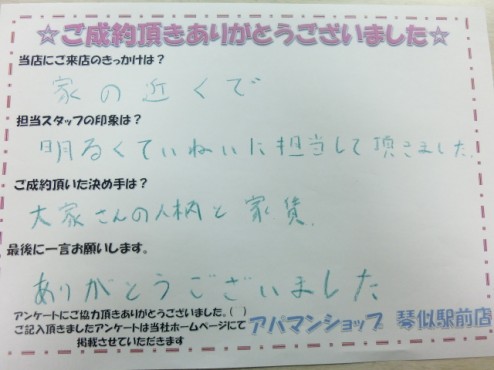 ☆ご成約頂きありがとうございました☆
当店にご来店のきっかけは？
家の近くで
担当スタッフの印象は？
明るくていねいに担当して頂きました。
ご成約頂いた決め手は？
大家さんの人柄と家賃。
最後に一言お願いします。
ありがとうございました
アンケートにご協力頂きありがとうございました。(　)
ご記入頂きましたアンケートは当社ホームページにて
掲載させていただきます
アパマンショップ 琴似駅前店